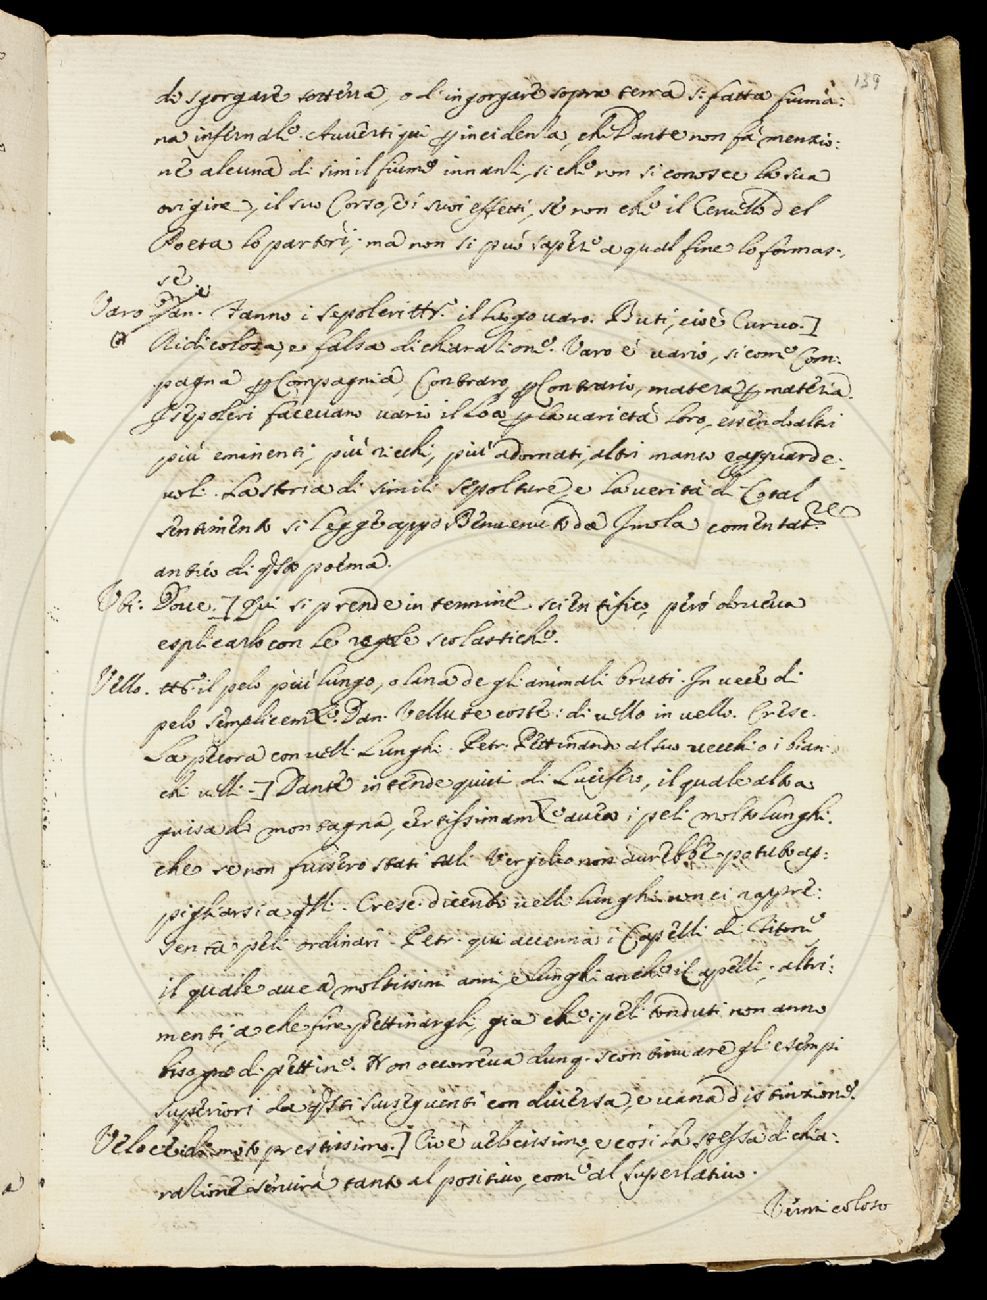 139
di sgorgare sotterra, o d'ingorgare sopra terra sì fatta fiuma:
na infernale. Avverti qui p incidenza, che Dante non fà menzio:
ne alcuna di simil fiume innanzi, si che non si conosce la sua
origine, il suo Corso, è i suoi effetti, se non che il Cervello del
Poeta lo partorì; ma non si può sapere a qual fine lo formas:
se.
Varo Dan. Fanno i sepolcri tts. il luogo varo. Buti, cioè Curvo.]
Ridicolosa, e falsa dichiaratione. Varo è vario, si come Com:
pagna p Compagnia, Contraro, p Contrario, matera p materia.
I sepolcri facevano vario il loco p la varietà loro, essendo altri
più eminenti, più ricchi, più adornati, altri manco ragguarde:
voli. La storia di simili sepolture, e la verità di Cotal
sentimento si legge appo Benvenuto da Imola comentatore
antico di qsto poema.
Ubi. Dove.] Qui si prende in termine scientifico, però doveva
esplicarlo con le regole scolastiche.
Vello. tts. il pelo più lungo, o lana de gli animali bruti. In vece di
pelo semplicemte. Dan. Vellute coste: di vello in vello. Cresc.
La pecora con velli lunghi. Petr. Pettinando al suo vecchio i bian:
chi velli.] Dante intende quivi di Lucifero, il quale alto a
guisa di montagna, certissimamte avea i peli molto lunghi,
che se non fussero stati tali Vergilio non aurebbe potuto ap:
pigliarsi a qlli. Cresc. dicendo velli lunghi non ci rappre:
senta peli ordinari. Petr. qui accenna i Capelli di Titone,
il quale avea moltissimi anni, e lunghi anche i Capelli; altri:
menti, a che fine pettinargli, già che i peli tonduti non anno
bisogno di pettine. Non occorreva dunq. scontinuare gli esempi
superiori da qsti susseguenti con diversa, e vana distinzione.
Veloce di moto prestissimo.] Cioè velocissimo, e così la stessa dichia:
ratione servirà tanto al positivo, come al superlativo.
Vermicoloso